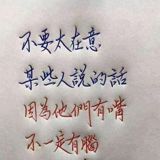 不要太在意
某些人說的話
因為他們有嘴
不一定有腦